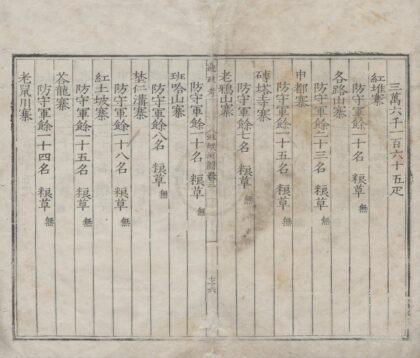 三萬六千一百六十五疋
紅堆寨
防守軍餘二十名 糧草無
各路山寨
防守軍餘二十三名 糧草無
申都寨
防守軍餘二十五名 糧草無
磚塔寺寨
防守軍餘七名 糧草無
老鴉山寨
防守軍餘二十名 糧草無
班哈山寨
防守軍餘八名 糧草無
埜仁溝寨
防守軍餘十八名 糧草無
紅土坡寨
防守軍餘二十五名 糧草無
荅龍寨
防守軍餘二十四名 糧草無
老鼠川寨